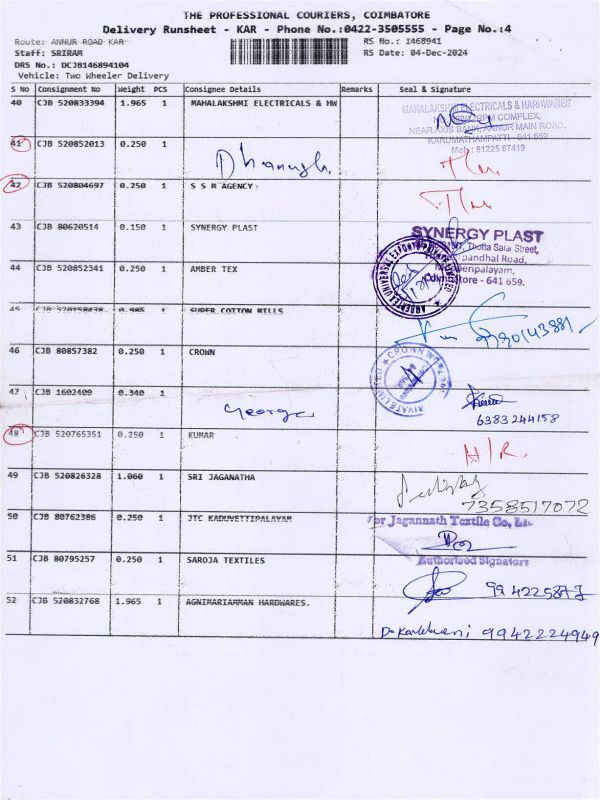 THE PROFESSIONAL COURIERS, COIMBATORE
Delivery Runsheet - KAR - Phone No.:0422-3505555 - Page No.:4
Route: ANNUR ROAD KAR
RS No.: I468941
Staff: SRIRAM
RS Date: 04-Dec-2024
DRS No.: DCJB146894104
Vehicle: Two Wheeler Delivery
S No Consignment No Weight PCS Consignee Details Remarks Seal & Signature
40 CJB 520833394 1.965 1 MAHALAKSHMI ELECTRICALS & HW
MAHALAKSHMI ELECTRICALS & HARDWARES
RPM COMPLEX,
NEAR AXIS BANK, ANNUR MAIN ROAD,
KARUMATHAMPATTI - 641
Mob: 81225 67419
41 CJB 520852013 0.250 1 Dhanush
42 CJB 520804697 0.250 1 S S M AGENCY
43 CJB 80620514 0.150 1 SYNERGY PLAST
SYNERGY PLAST
Thotta Salai Street,
pandhal Road,
Coimbatore - 641 659.
44 CJB 520852341 0.250 1 AMBER TEX
45 CJB 520158438 0.985 1 SUPER COTTON MILLS
46 CJB 80857382 0.250 1 CROWN
CROWN
47 CJB 1602409 0.340 1 George
6383244158
48 CJB 520765351 0.250 1 KUMAR
49 CJB 520826328 1.060 1 SRI JAGANATHA
7358517072
50 CJB 80762386 0.250 1 JTC KADUVETTIPALAYAM
For Jagannath Textile Co., Ltd.
Authorised Signatory
51 CJB 80795257 0.250 1 SAROJA TEXTILES
52 CJB 520832768 1.965 1 AGNIMARIAMMAN HARDWARES.
9942224949